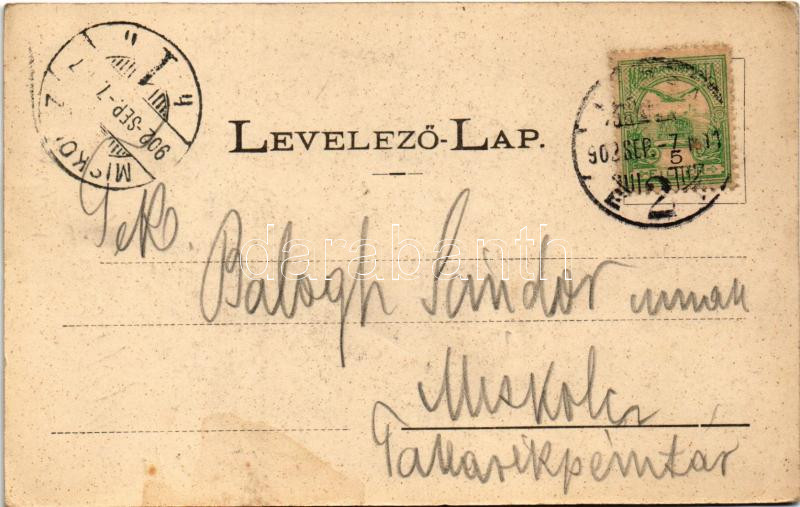 MISKOLCZ
902 SEP. -7
LEVELEZŐ-LAP.
902 SEP. -7
5
2
Tek.
Balogh Sándor urnak
Miskolcz
Takarékpénztár
darabanth